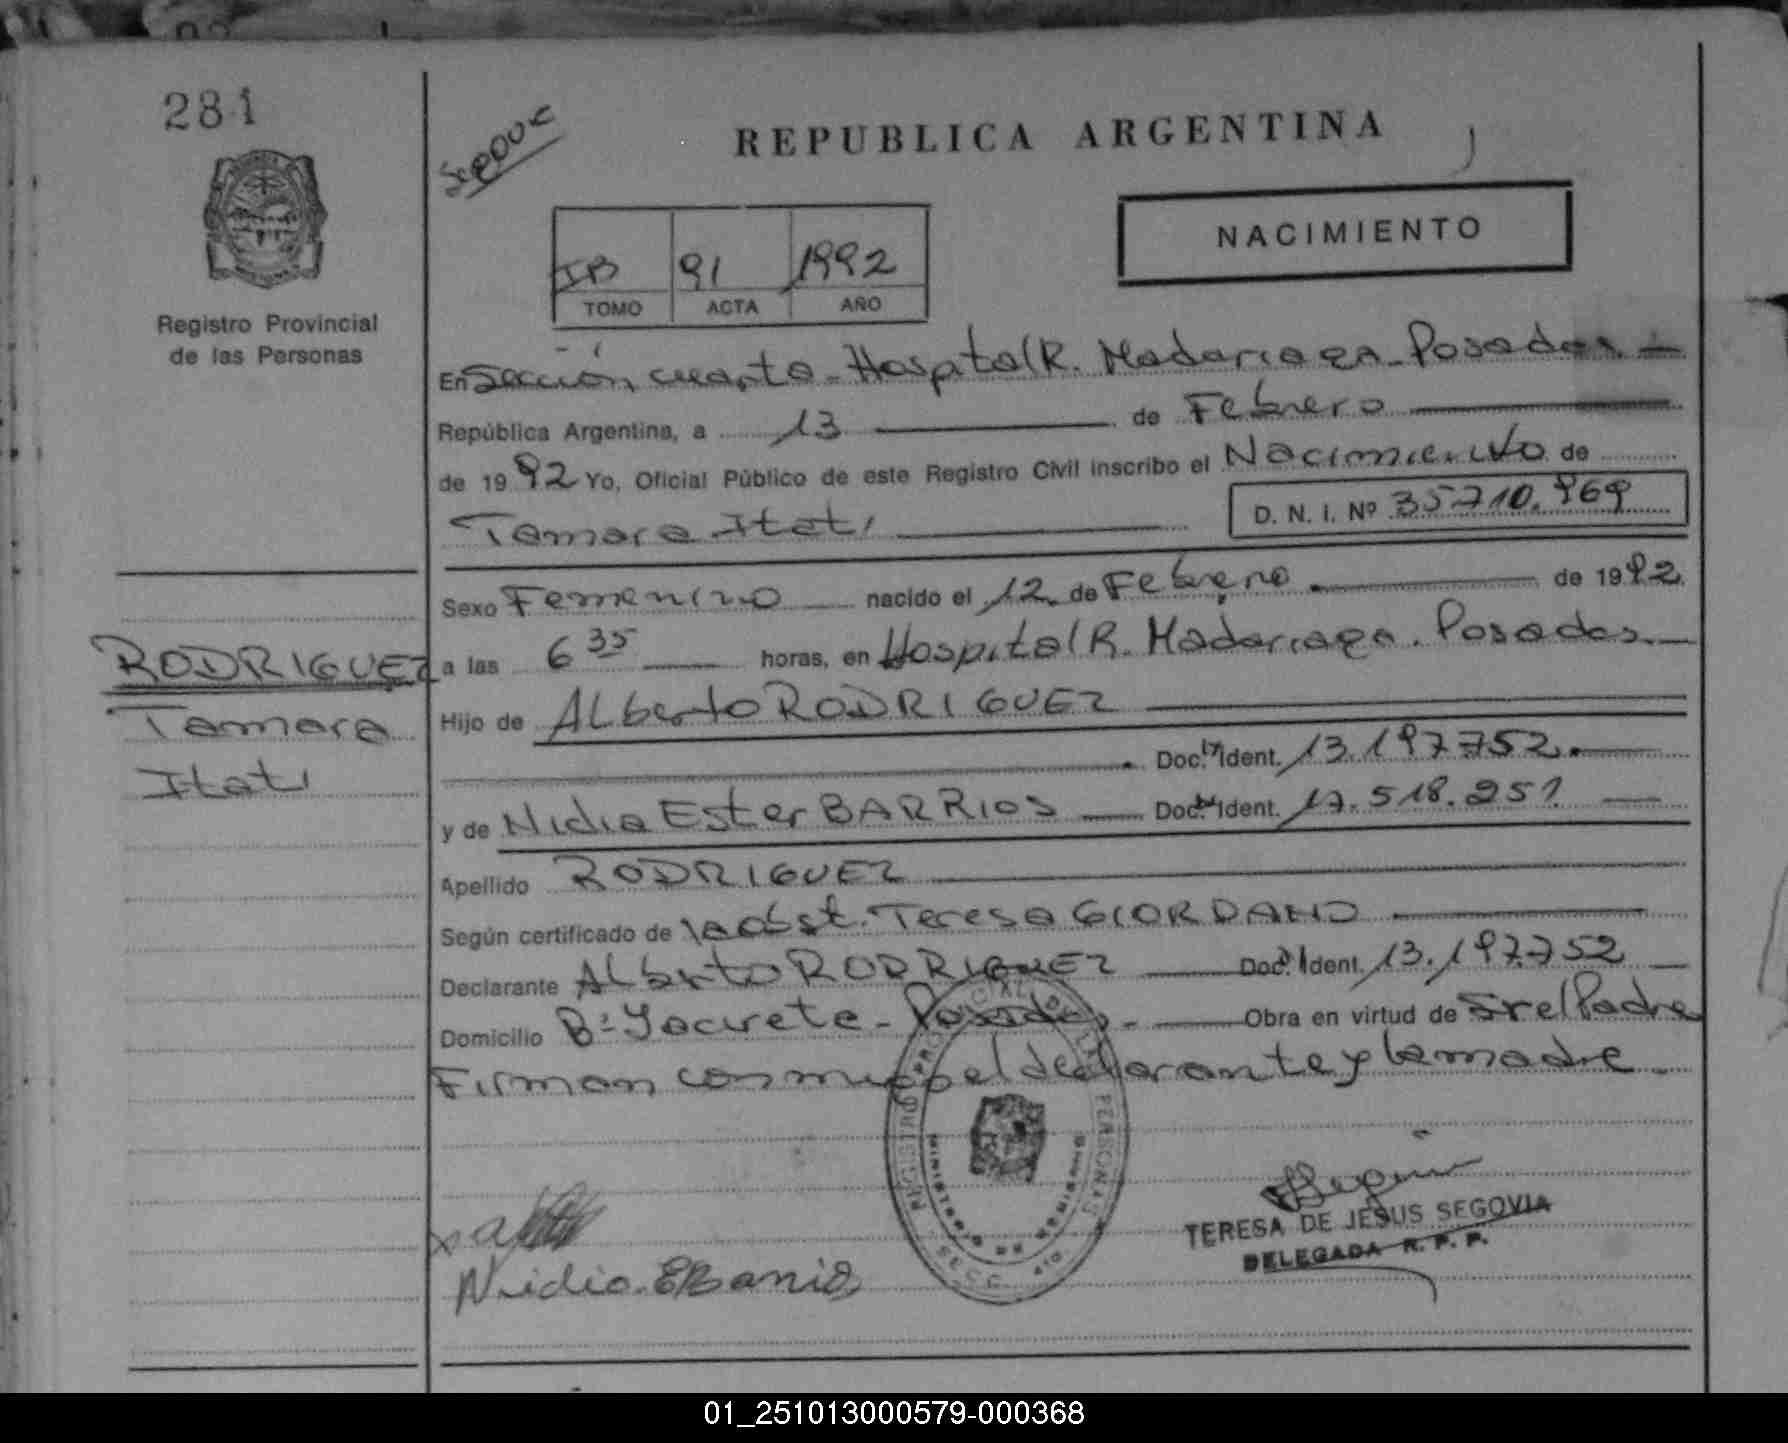 281
REPUBLICA ARGENTINA
NACIMIENTO
IB 91 1992
TOMO ACTA AÑO
Registro Provincial
de las Personas
En Sección cuarta - Hospital R. Madariaga - Posadas. —
República Argentina, a 13 de Febrero
de 1992 Yo, Oficial Público de este Registro Civil inscribo el Nacimiento de
Tamara Itatí
D. N. I. Nº 35710.969
Sexo Femenino nacido el 12 de Febrero de 1992
RODRIGUEZ
Tamara
Itatí
a las 6 35 horas, en Hospital R. Madariaga. Posadas. —
Hijo de ALberto RODRIGUEZ
Doc. Ident. 13.197.752.
y de Nidia Ester BARRIOS Doc. Ident. 17.518.251
Apellido RODRIGUEZ
Según certificado de la obst. Teresa GIORDANO
Declarante ALberto RODRIGUEZ Doc. Ident. 13.197.752
Domicilio Bº Yacirete - Posadas. Obra en virtud de Sr el Padre
Firman conmigo el declarante y la madre.
REGISTRO PROVINCIAL DE LAS PERSONAS
MINISTERIO DE GOBIERNO
TERESA DE JESUS SEGOVIA
DELEGADA R. P. P.
Nidia E Barrios
01_251013000579-000368